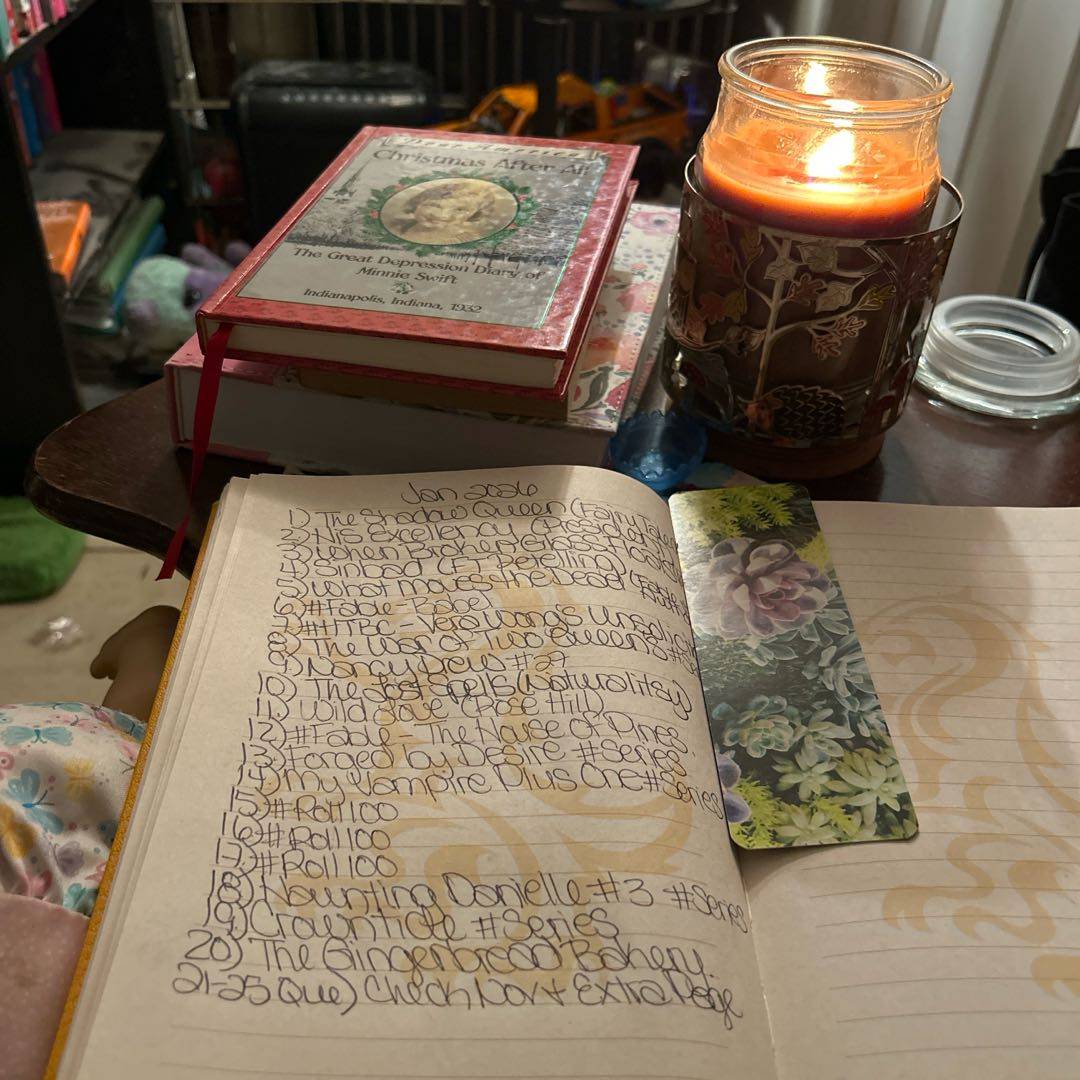 Dear America
Christmas After All
The Great Depression Diary of
Minnie Swift
Indianapolis, Indiana, 1932
Jan 2026
1) The Shadow Queen (Fairytale
2) His Excellency
3) When Broken Glass
4) Sinbad (FT Retelling)
5) What Moves the Dead (Fable
6) #Fable - Babel
7) #HTBC - Vera Wong's Unsolicit
8) The War of Two Queens #
9) Nancy Drew #29
10) The Lost Spells
11) Wild Love (Rose Hill)
12) #Fable - The House of Pines
13) Forged by Desire #Series
14) My Vampire Plus One #Series
15) #Roll100
16) #Roll100
17) #Roll100
18) Haunting Danielle #3 #Series
19) Crowntide #Series
20) The Gingerbread Bakery.
21-25 Que) Check Nov + Extra Page